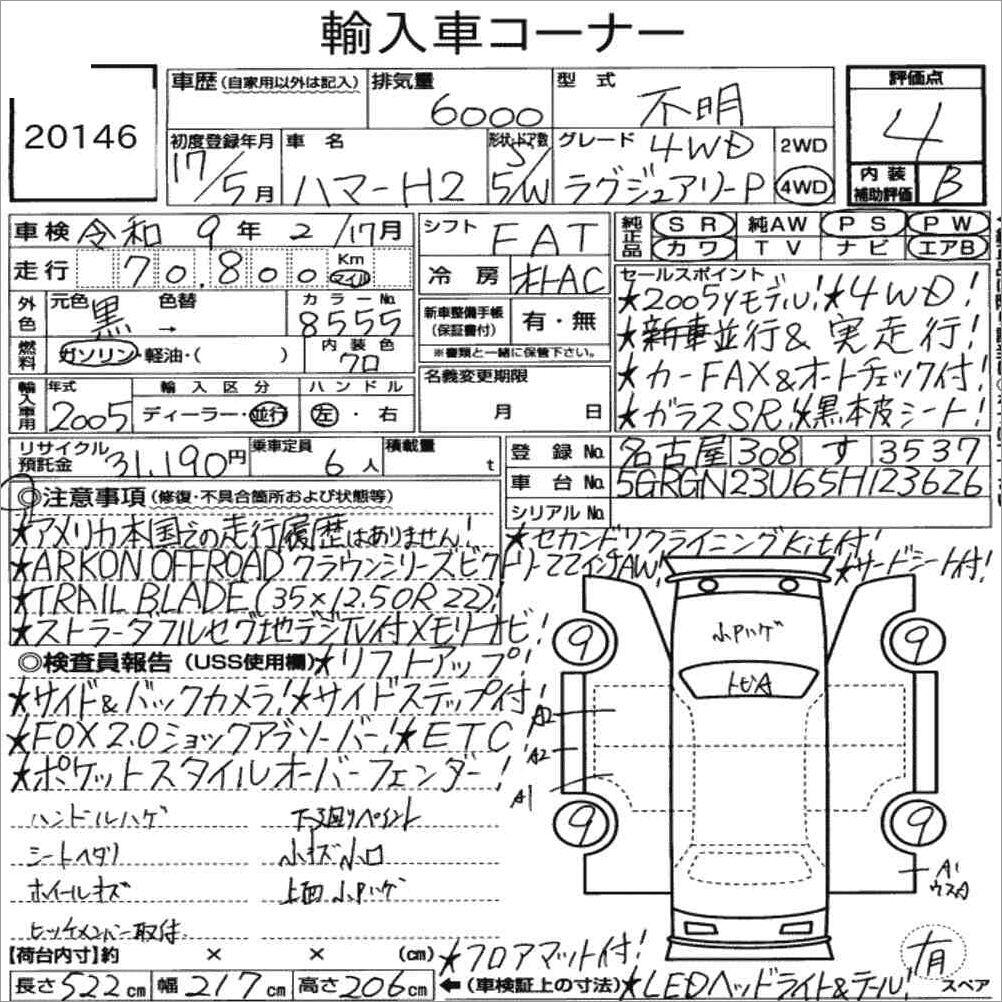 輸入車コーナー
20146
車歴 (自家用以外は記入) 排気量 6000 型式 不明
評価点 4
初度登録年月 17/5月 車名 ハマーH2 形状・ドア数 5/W グレード 4WD ラグジュアリーP 2WD 4WD
内装補助評価 B
車検 令和 9年 2/17月 シフト FAT 純正品 SR 純AW PS PW
カワ TV ナビ エアB
走行 70,800 Km マイル 冷房 AC
外色 元色 黒 色替 → カラーNo. 8555
新車整備手帳 (保証書付) 有・無
※書類と一緒に保管下さい。
燃料 ガソリン・軽油・( ) 内装色 クロ
輸入車用 年式 2005 輸入区分 ディーラー・並行 ハンドル 左・右
名義変更期限 月 日
セールスポイント
★2005yモデル!★4WD!
★新車並行&実走行!
★カーFAX&オートチェック付!
★ガラスSR!★黒本皮シート!
リサイクル預託金 31,190円 乗車定員 6人 積載量 t
登録No. 名古屋 308 す 3537
車台No. 5GRGN23U65H123626
シリアルNo.
◎注意事項 (修復・不具合箇所および状態等)
★アメリカ本国での走行履歴はありません!
★セカンドワクライニングkit付!
★ARKON OFFROAD クラウンシリーズビクトリー22インチAW!
★サードシート付!
★TRAIL BLADE (35×12.50R22)!
★ストラーダフルセグ地デジTV付メモリーナビ!
◎検査員報告 (USS使用欄) ★リフトアップ!
★サイド&バックカメラ!★サイドステップ付!
★FOX2.0ショックアブソーバー!★ETC!
★ポケットスタイルオーバーフェンダー!
ハンドルハゲ 下廻りペイント
シートヘタリ 小キズ小凹
ホイールキズ 上面小Pハゲ
ヒッチメンバー取付
小Pハゲ
トビA
9
9
9
9
A2
A2
A1
A1
ウスA
【荷台内寸】約 × × (cm)
★フロアマット付!
長さ522cm 幅217cm 高さ206cm ←(車検証上の寸法)
★LEDヘッドライト&テール!
有
スペア